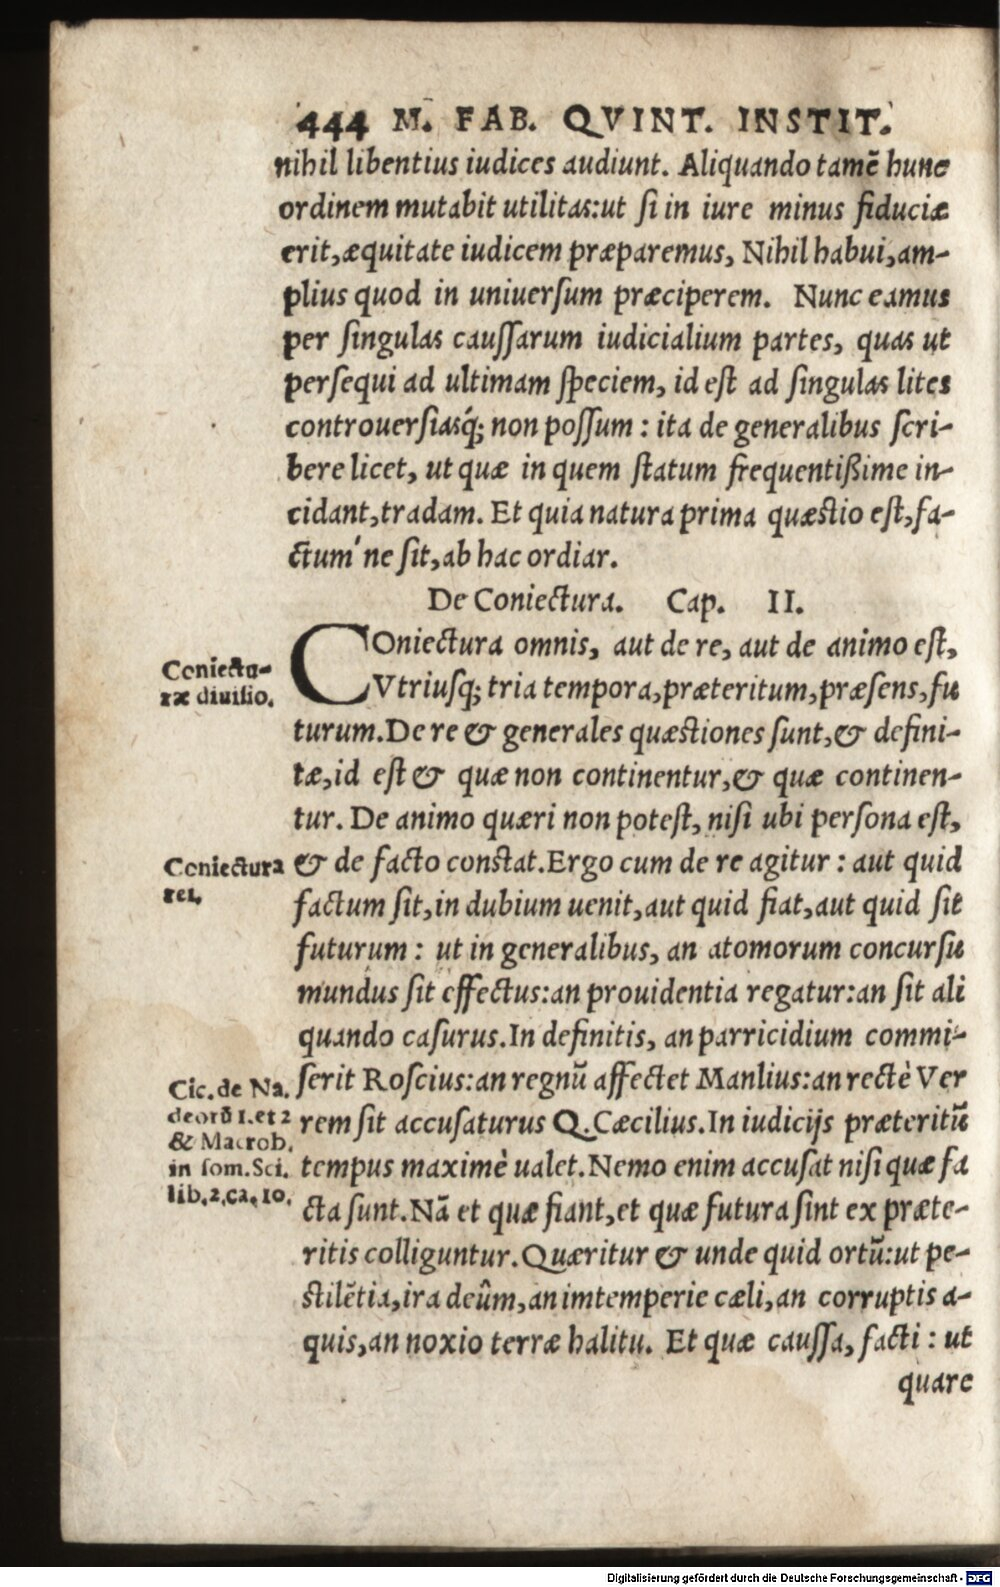 444 M. FAB. QVINT. INSTIT.
nihil libentius iudices audiunt. Aliquando tamē hunc
ordinem mutabit utilitas:ut ſi in iure minus fiduciæ
erit,æquitate iudicem præparemus, Nihil habui,am-
plius quod in uniuerſum præciperem. Nunc eamus
per ſingulas cauſſarum iudicialium partes, quas ut
perſequi ad ultimam ſpeciem, id eſt ad ſingulas lites
controuerſiasq́; non poſſum : ita de generalibus ſcri-
bere licet, ut quæ in quem ſtatum frequentißime in-
cidant,tradam. Et quia natura prima quæſtio eſt,fa-
ctum´ne ſit,ab hac ordiar.
De Coniectura. Cap. II.
COniectura omnis, aut de re, aut de animo eſt,
Vtriuſq; tria tempora,præteritum,præſens,fu
turum.De re & generales quæſtiones ſunt,& defini-
tæ,id eſt & quæ non continentur,& quæ continen-
tur. De animo quæri non poteſt, niſi ubi perſona eſt,
& de facto conſtat.Ergo cum de re agitur : aut quid
factum ſit,in dubium uenit,aut quid fiat,aut quid ſit
futurum : ut in generalibus, an atomorum concurſu
mundus ſit effectus:an prouidentia regatur:an ſit ali
quando caſurus.In definitis, an parricidium commi-
ſerit Roſcius:an regnū affectet Manlius:an rectè Ver
rem ſit accuſaturus Q.Cæcilius.In iudicijs præteritū
tempus maximè ualet.Nemo enim accuſat niſi quæ fa
cta ſunt.Nā et quæ fiant,et quæ futura ſint ex præte-
ritis colliguntur.Quæritur & unde quid ortū:ut pe-
ſtilētia,ira deûm,an imtemperie cæli,an corruptis a-
quis,an noxio terræ halitu. Et quæ cauſſa, facti : ut
quare
Coniectu-
ræ diuiſio.
Coniectura
rei.
Cic. de Na.
deorū 1. et 2
& Macrob.
in ſom. Sci.
lib. 2. ca. 10.
Digitalisierung gefördert durch die Deutsche Forschungsgemeinschaft - DFG